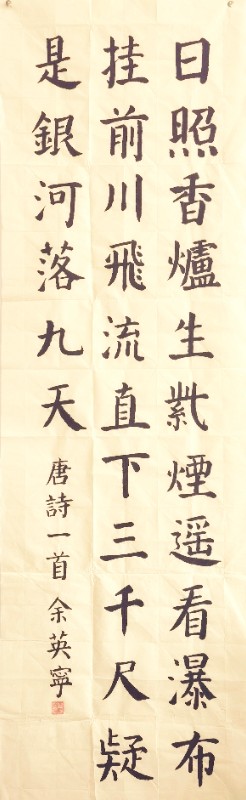 日照香爐生紫煙遥看瀑布
挂前川飛流直下三千尺疑
是銀河落九天
唐詩一首 余英寧